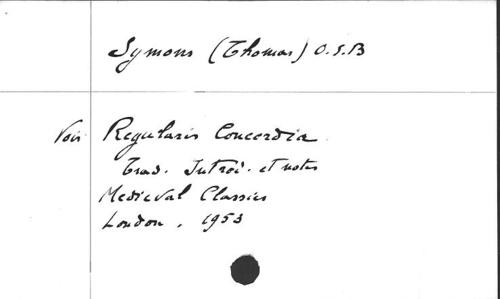 Symons (Thomas) O.S.B
Voir Regularis Concordia.
Trad. Introd. et notes
Medieval Classics
London, 1953